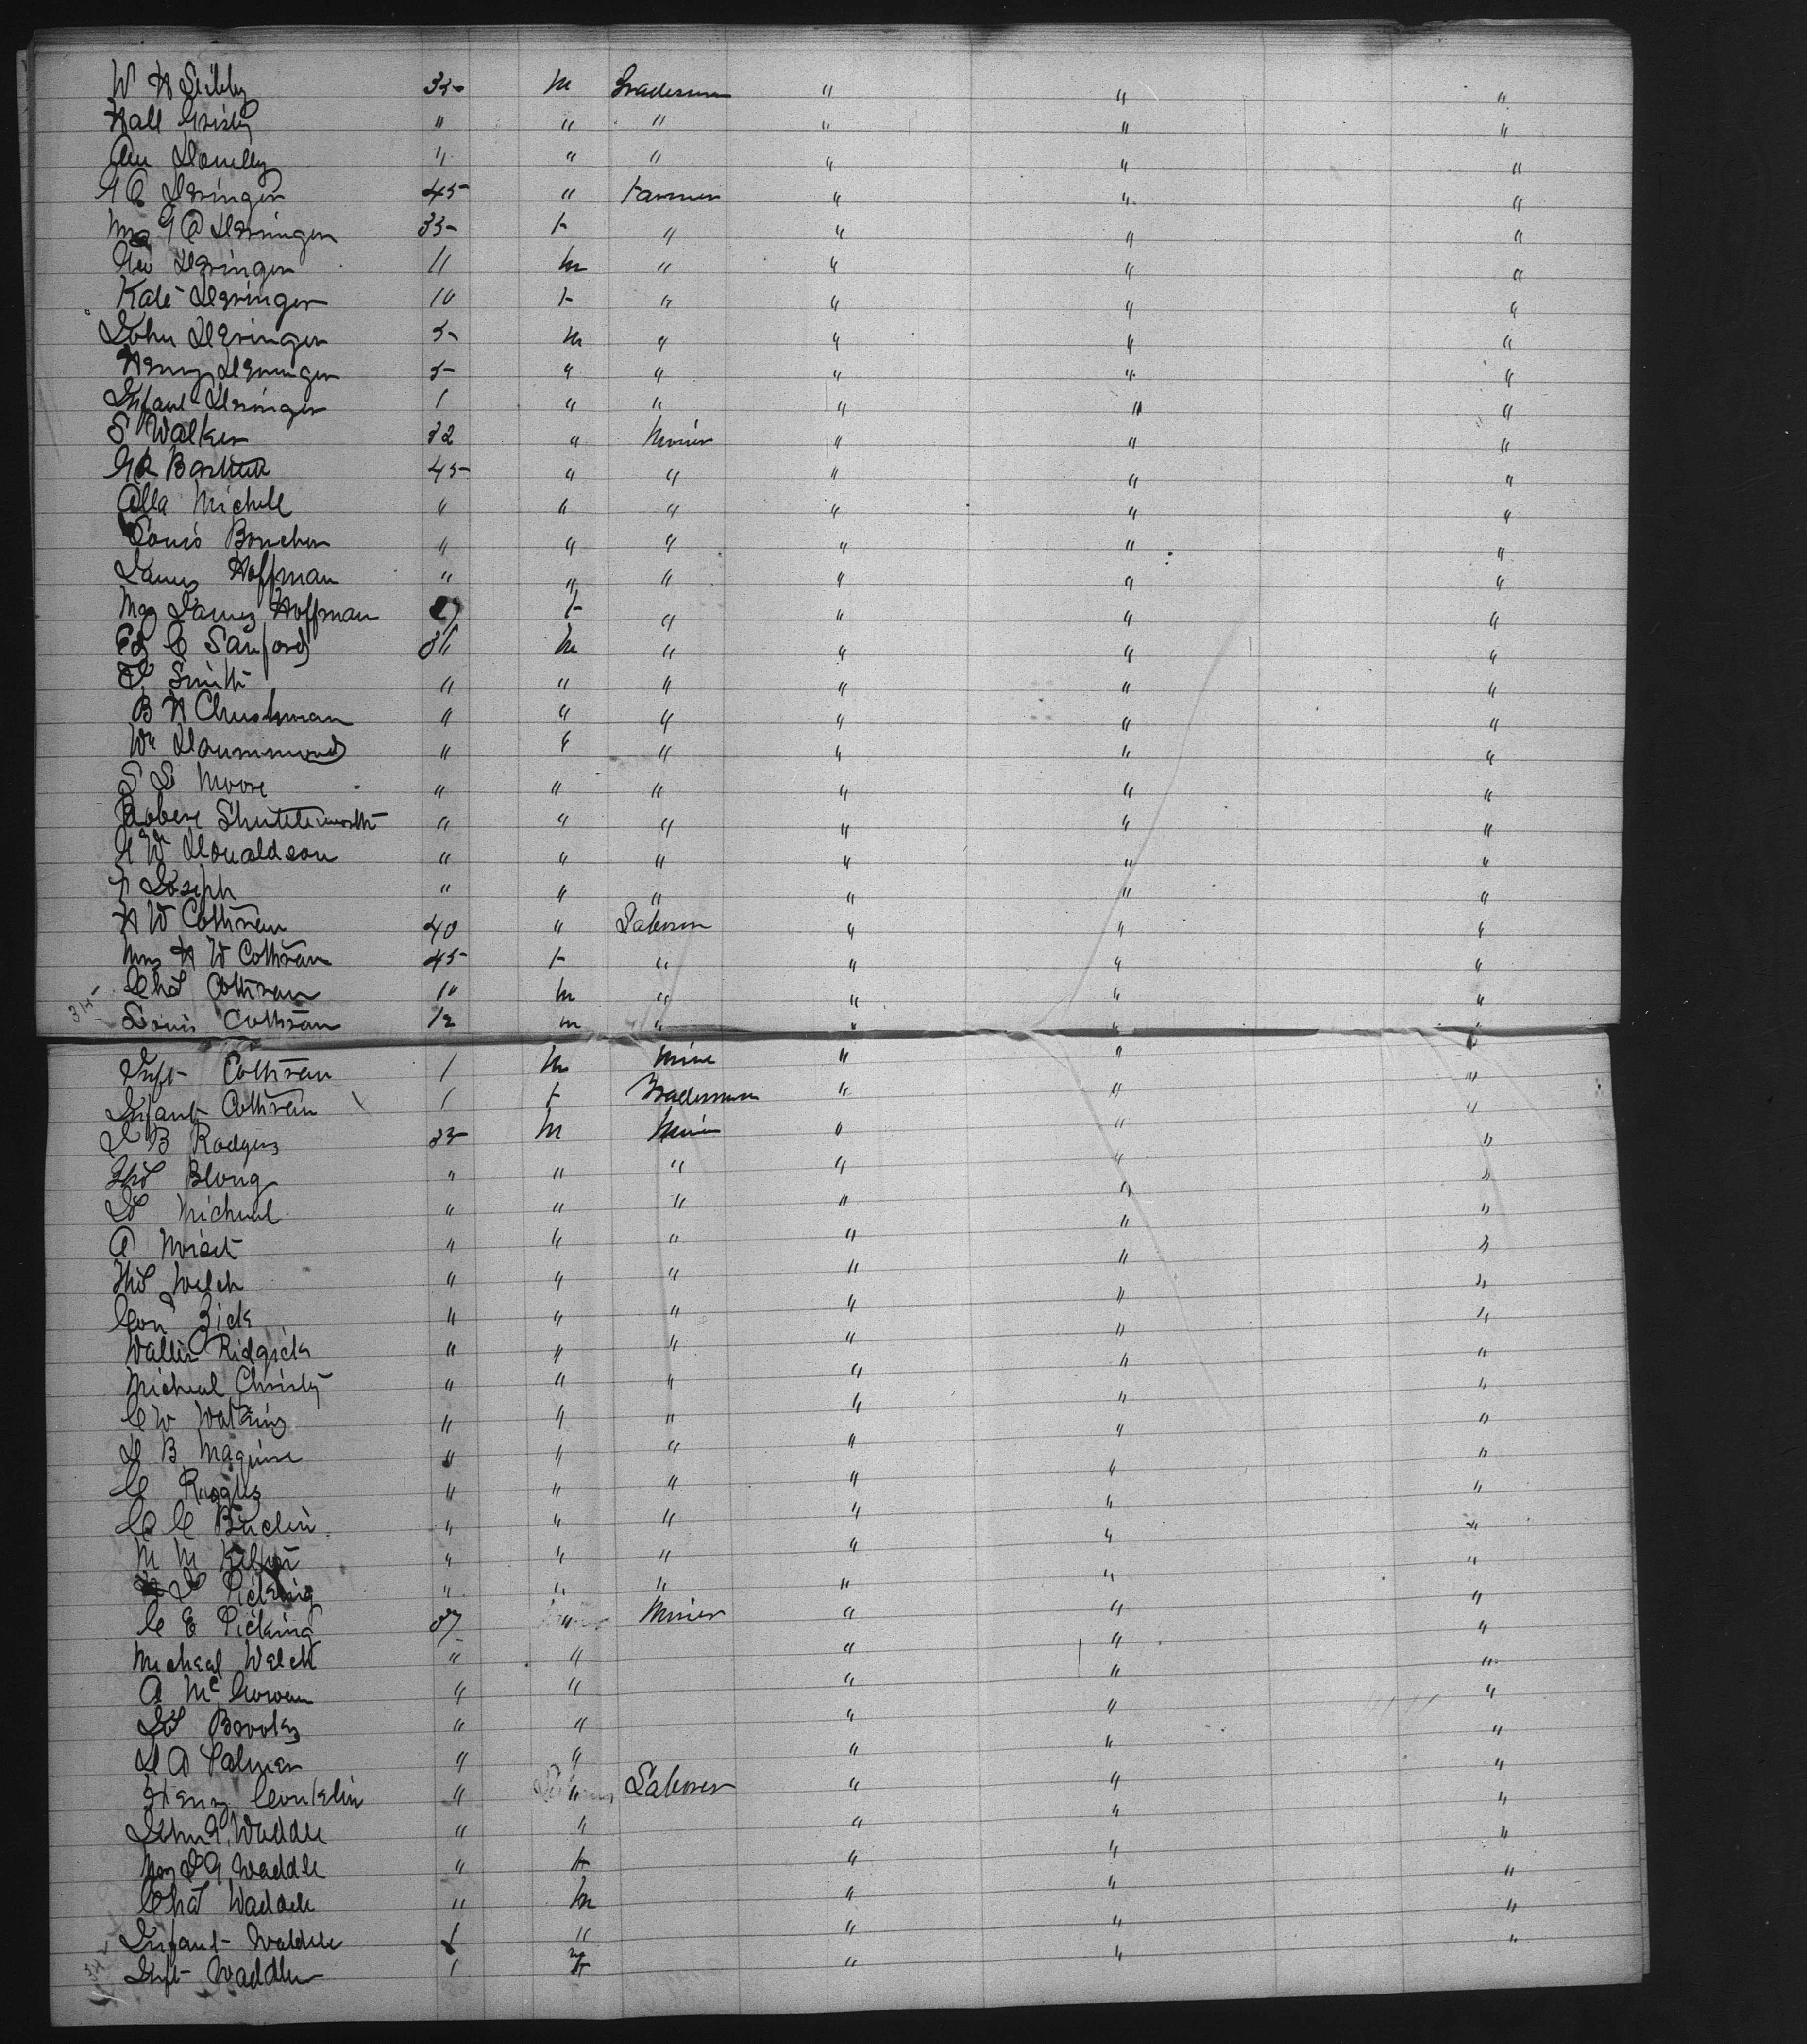 W H Libby 35 M Tradesman " " "
Hall Gristy " " " " " "
Donelly " " " " " "
G A Deringer 45 " Farmer " " "
Mrs G A Deringer 35 F " " " "
Geo Deringer 11 M " " " "
Kate Deringer 10 F " " " "
John Deringer 5 M " " " "
Henry Deringer 5 " " " " "
Infant Deringer 1 " " " " "
S Walker 32 " Miner " " "
45 " " " " "
Michell " " " " " "
Louis Boucher " " " " " "
James Hoffman " " " " " "
Mrs James Hoffman F " " " "
Ed C Sanford M " " " "
Smith " " " " " "
B H Chushman " " " " " "
Wm Doummond " " " " " "
S S Moore " " " " " "
Robert Shuttleworth " " " " " "
G W Donaldson " " " " " "
F Joseph " " " " " "
H W Cothran 40 " Laborer " " "
Mrs H W Cothran 45 F " " " "
Chas Cothran 10 M " " " "
Louis Cothran 12 m " " " "
Inft Cothran 1 M Mine " " "
Infant Cothran 1 F Tradesman " " "
J B Rodgers 35 M Miner " " "
Thos Blong " " " " " "
Micheal " " " " " "
A " " " " " "
Thos Welch " " " " " "
Con Zick " " " " " "
Walter Ridgick " " " " " "
Micheal Christy " " " " " "
C W Watkins " " " " " "
D B Maguire " " " " " "
C Ruggles " " " " " "
C C " " " " " "
M M " " " " " "
Pickring " " " " " "
C E Pickring 37 " Miner " " "
Micheal Welch " " " " "
A McGowan " " " " "
Brooks " " " " "
D A Palmer " " " " "
Henry Conklin " " Laborer " " "
John G Waddle " " " " "
Mrs J G Waddle " F " " "
Chas Waddle " M " " "
Infant Waddle 1 " " " "
Inft Waddle 1 F " "